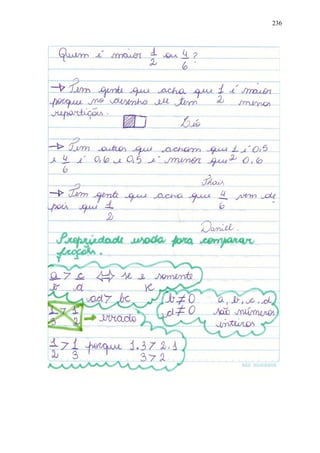 236
Quem é maior 1/2 ou 4/6?
→ Tem gente que acha que 1/2 é maior
porque no desenho ele tem menos
repartição.
Léo
→ Tem outros que acham que 1/2 é 0,5
e 4/6 é 0,6 e 0,5 é menor que 0,6
Thais
→ Tem gente que acha que 4/6 vem de
pois que 1/2
Daniel.
Propriedade usada para comparar
frações.
a/b > c/d ⇔ se e somente
ad > bc
b ≠ 0
d ≠ 0
a, b, c, d
são números
inteiros
1/3 > 1/2 → errado
1/2 > 1/3 porque 1.3 > 2.1
3 > 2